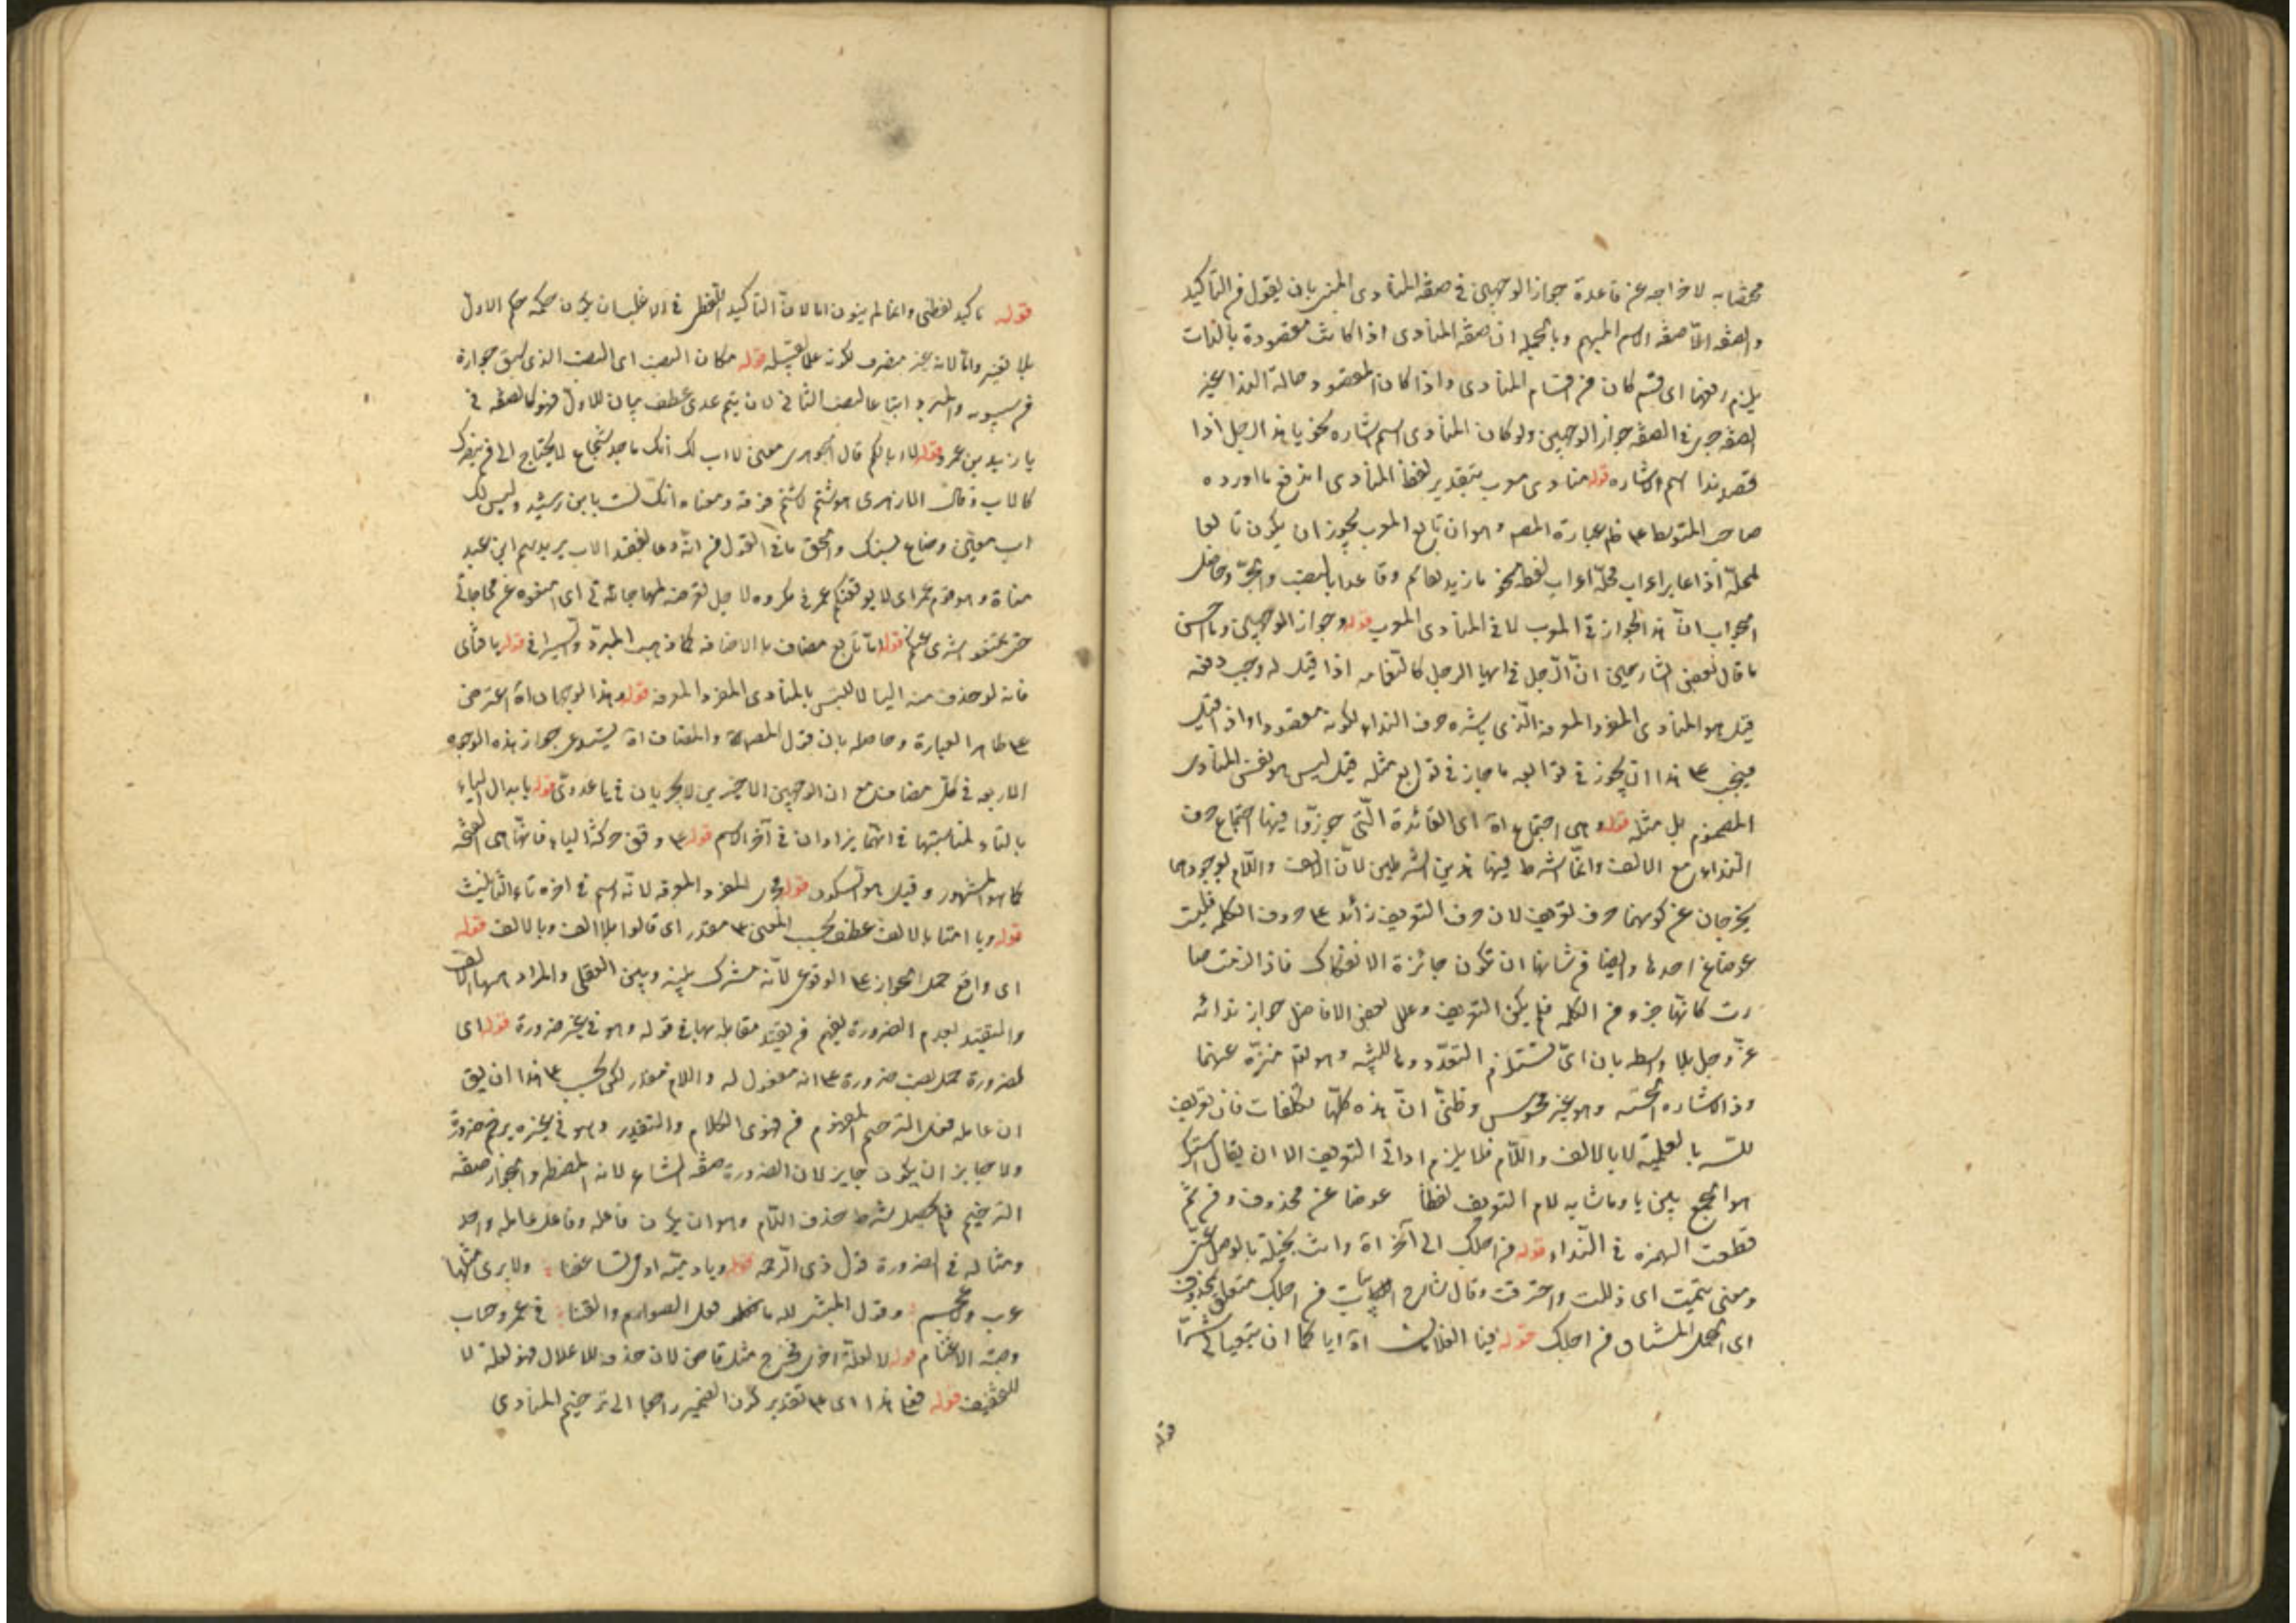 محضا به لاخراجه عن قاعدة جواز الوجهين في صفة المنادى المبني بان يقول في التأكيد
والصفة الا صفة الاسم المبهم وبالجملة ان صفة المنادى اذا كانت مقصودة بالذات
يلزم رفعها اى قسم كان من اقسام المنادى واذا كان المقصود حالة الندا غير
الصفة جرى في الصفة جواز الوجهين ولو كان المنادى اسم اشاره نحو يا هذا الرجل اذا
قصد ندا اسم الاشاره قوله منادى معرب بتقدير لفظ المنادى اندفع ما اورده
صاحب المتوسط ع ظ عبارة المصـ وهو ان تابع المعرب يجوز ان يكون تابعا
لمحله اذا غاير اعراب محله اعراب لفظه نحو ما زيد بقائم وقاعدا بالنصب والجر وحاصل
الجواب ان هذا الجواز في المعرب لا في المنادى المعرب قوله وجواز الوجهين وما احسن
ما قال بعض الشارحين ان الرجل في ايها الرجل كالنعامه اذا قيل له وجب رفعه
قيل هو المنادى المفرد المعرفه الذى يباشره حرف النداء لكونه مقصودا واذا قيل
فيجب ع هذا ان يجوز في توابعه ما جاز في توابع مثله قيل ليس هو نفس المنادى
المضموم بل مثله قوله وهى اجتماع اه اى الفائدة التى جوزوا فيها اجتماع حرف
النداء مع الالف وانما اشترط فيها هذين الشرطين لان الالف واللام بوجودهما
يخرجان عن كونهما حرف تعريف لان حرف التعريف زائد ع حروف الكلمه فليست
عوضا عن احدها وايضا من شانها ان تكون جائزة الانفكاك فاذا لزمت صا
رت كانها جزء من الكلمه فلم يكن للتعريف وعلل بعض الافاضل جواز ندائه
عز وجل بلا واسطه بان اى تستلزم التعدد وها للتنبيه وهو تعـ منزه عنهما
وذا لاشاره الحسيه وهو غير محسوس وظنى ان هذه كلها تكلفات فان تعريف
لله بالعلميه لا بالالف واللام فلا يلزم اداتى التعريف الا ان يقال استكراه
هو الجمع بين يا وما شابه لام التعريف لفظا عوضا عن محذوف ومن ثم
قطعت الهمزه في النداء قوله من اجلك الى آخره اه وانت بخيلة بالوصل عنى
ومعنى تيمت اى ذللت واحترقت وقال شارح ابيات من اجلك متعلق بمحذوف
اى اتحمل المشاق من اجلك قوله فيا الغلامان اه اياكما ان تبغيا لى شرا
قوله
قوله تاكيد لفظى وانما لم ينون اما لان التأكيد اللفظى في الاغلب ان يكون حكمه حكم الاول
بلا تغيير واما لانه غير منصرف لكونه علما لقبيله قوله مكان النصب اى النصب الذى سبق جوازه
من سيبويه والمبرد اتباعا لنصب الثاني لان تيم عدى عطف بيان للاول فهو كالصفه في
يا زيد بن عمرو قوله لا ابا لكم قال الجوهرى معنى لا اب لك انك ماجد شجاع لا يحتاج الى من ينصرك
كالاب وقال الازهرى هو شتم لا شتم فوقه ومعناه انك لست بابن رشيد وليس لك
اب معين وضاع نسبك والحق ما في القول من انه دعا بفقد الاب يريد تيم ابن عبد
مناة وهو قوم عمر اى لا يوقعنكم عمر في مكروه لاجل تعرضه لمهاجاتى اى امنعوه عن مهاجاتى
حتى تمنعوا شرى عنكم قوله اما تابع مضاف بالاضافه كما ذهب المبرد والسيرافى قوله يا فتاى
فانه لو حذف منه اليا لالتبس بالمنادى المفرد المعرفه قوله وهذا الوجهان اه اعترض
ع ظاهر العباره وحاصله بان قول المصـ والمضاف اه يستدعى جواز هذه الوجوه
الاربعه في كل مضاف مع ان الوجهين الاخيرين لا يجريان في يا عدوى قوله يابدال الياء
بالتاء لمناسبتها في انهما يزادان في آخر الاسم قوله ع وفق حركة الياء فانها هى الفتحه
كما هو المشهور وقيل هو السكون قوله مجرى المفرد المعرفه لانه اسم في اخره تاء التانيث
قوله ويا امتا بالالف عطف بحسب المعنى ع مقدر اى قالوا بلا الف وبالالف قوله
اى واقع حمل الجواز ع الوقوع لانه مشترك بينه وبين العقلى والمراد ههنا الالف
والتقييد بعدم الضرورة يفهم من تقييد مقابله بها في قوله وهو في غيره ضرورة قوله اى
لضرورة حمل نصب ضرورة ع انه مفعول له واللام مقدر لكن يجب ع هذا ان يق
ان عامله فعل الترخيم المفهوم من فحوى الكلام والتقدير وهو في غيره يرخم ضرورة
ولا جايز ان يكون جايز لان الضرورة صفة الشاعر لانه المضطر والجواز صفة
الترخيم فلم يحصل شرط حذف اللام وهو ان يكون فاعله وفاعل عامله واحد
ومثاله في الضرورة قول ذى الرمه قوله ديار ميه اذ مى تساعفنا ؛ ولا يرى مثلها
عرب ولا عجم ؛ وقول المبشر لله ما فعل الصوارم والقنا ؛ في عمرو حاب
وضبة الاغنام قوله لا لعلة اخرى فخرج مثل قاض لان حذفه للاعلال فهو لعلة لا
للتخفيف قوله فعلى هذا اى ع تقدير كون الضمير راجعا الى ترخيم المنادى